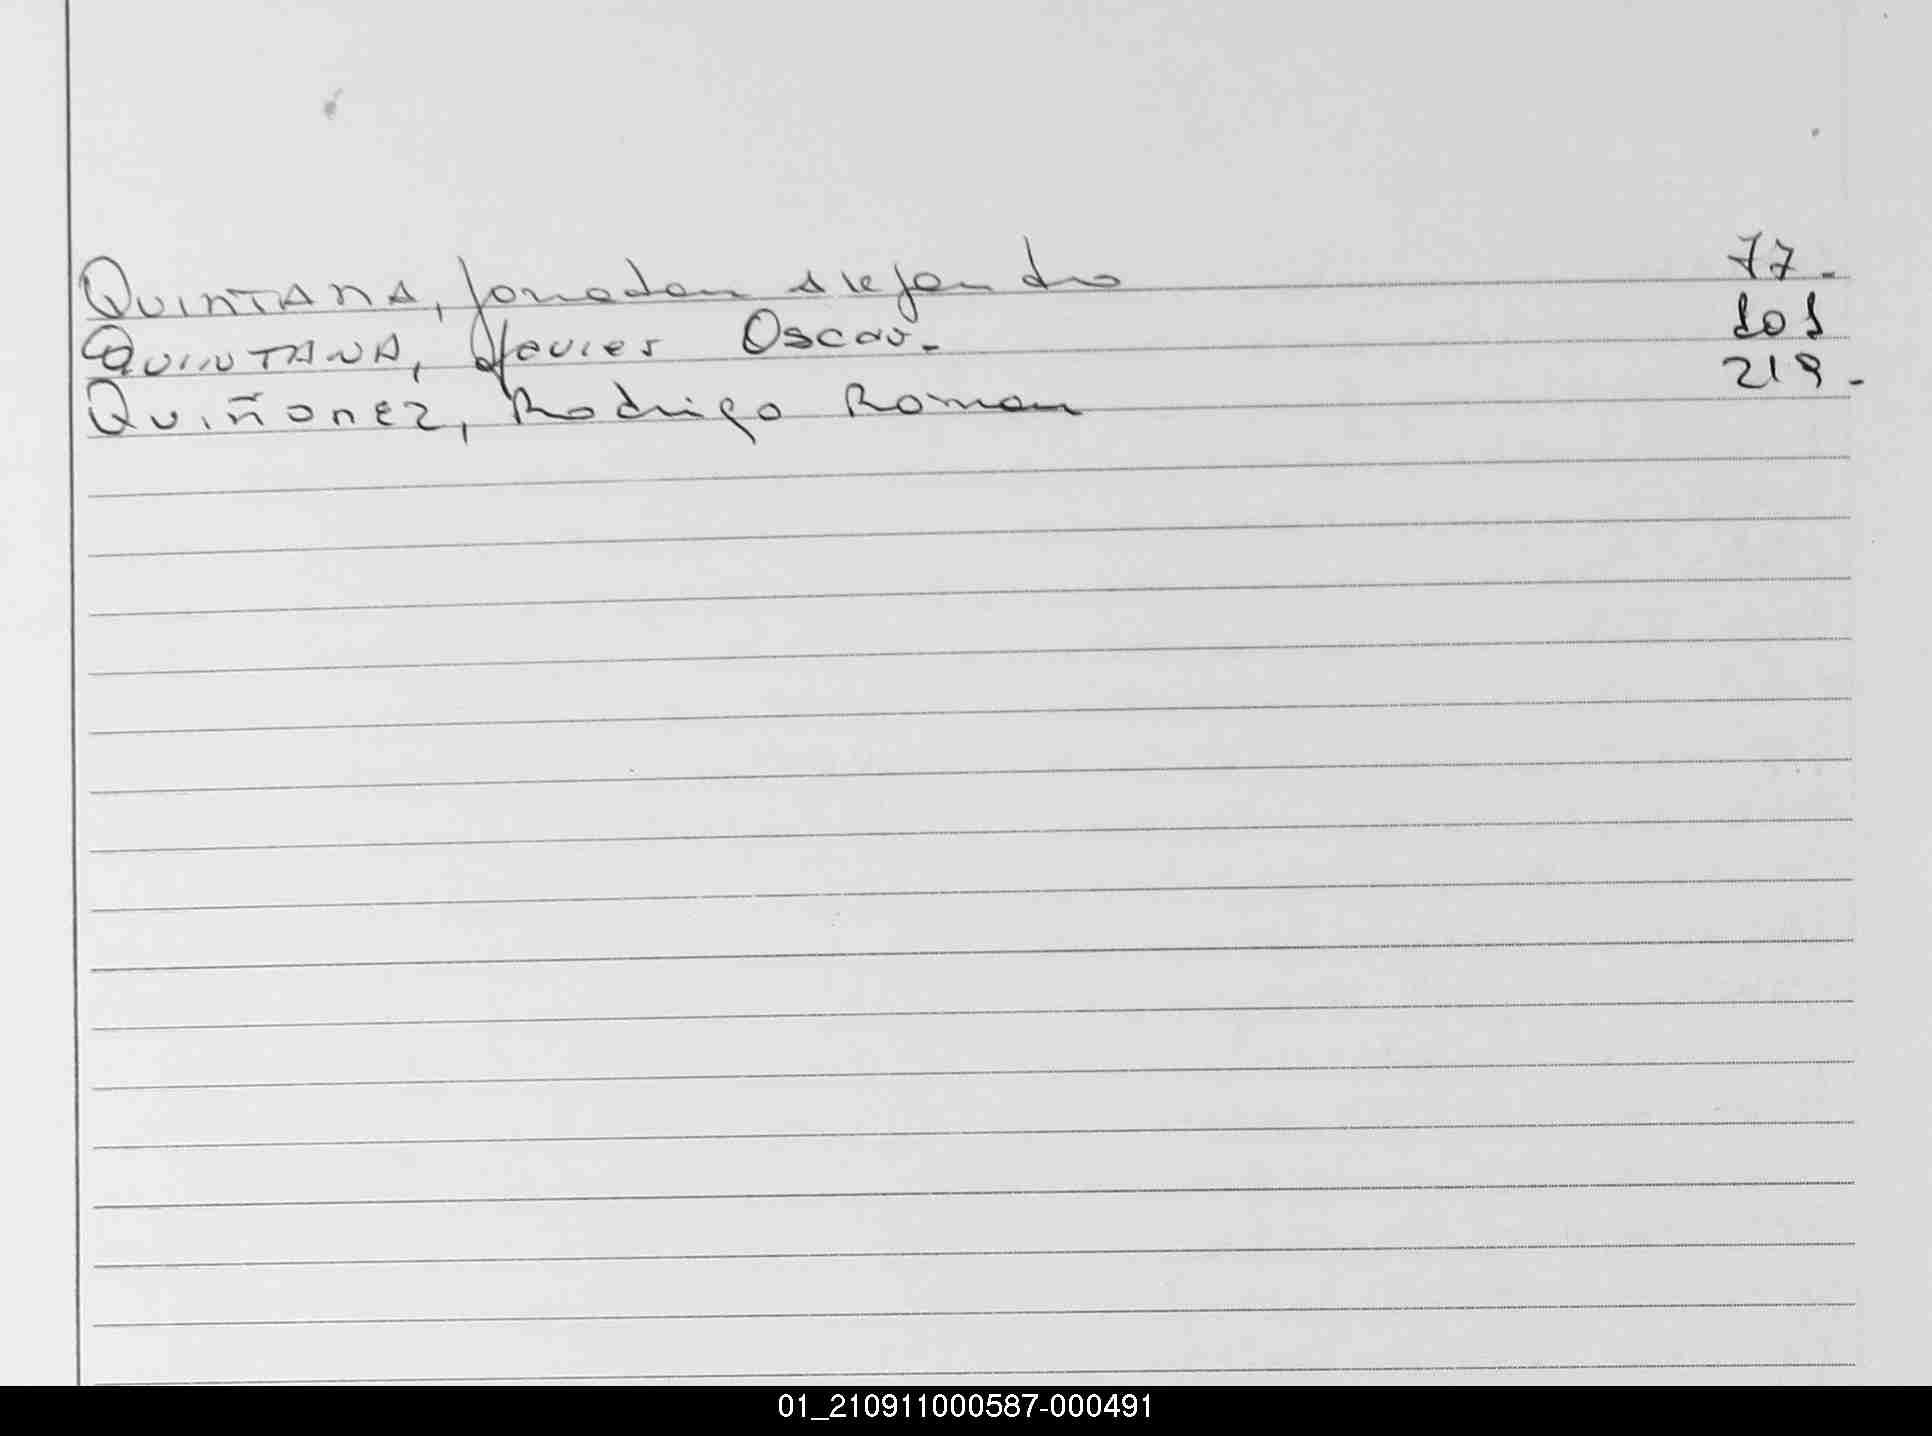 QUINTANA, Jonadan Alejandro 77.
QUINTANA, Javier Oscar. 101
QuiñonEz, Rodrigo Roman 219.
01_210911000587-000491